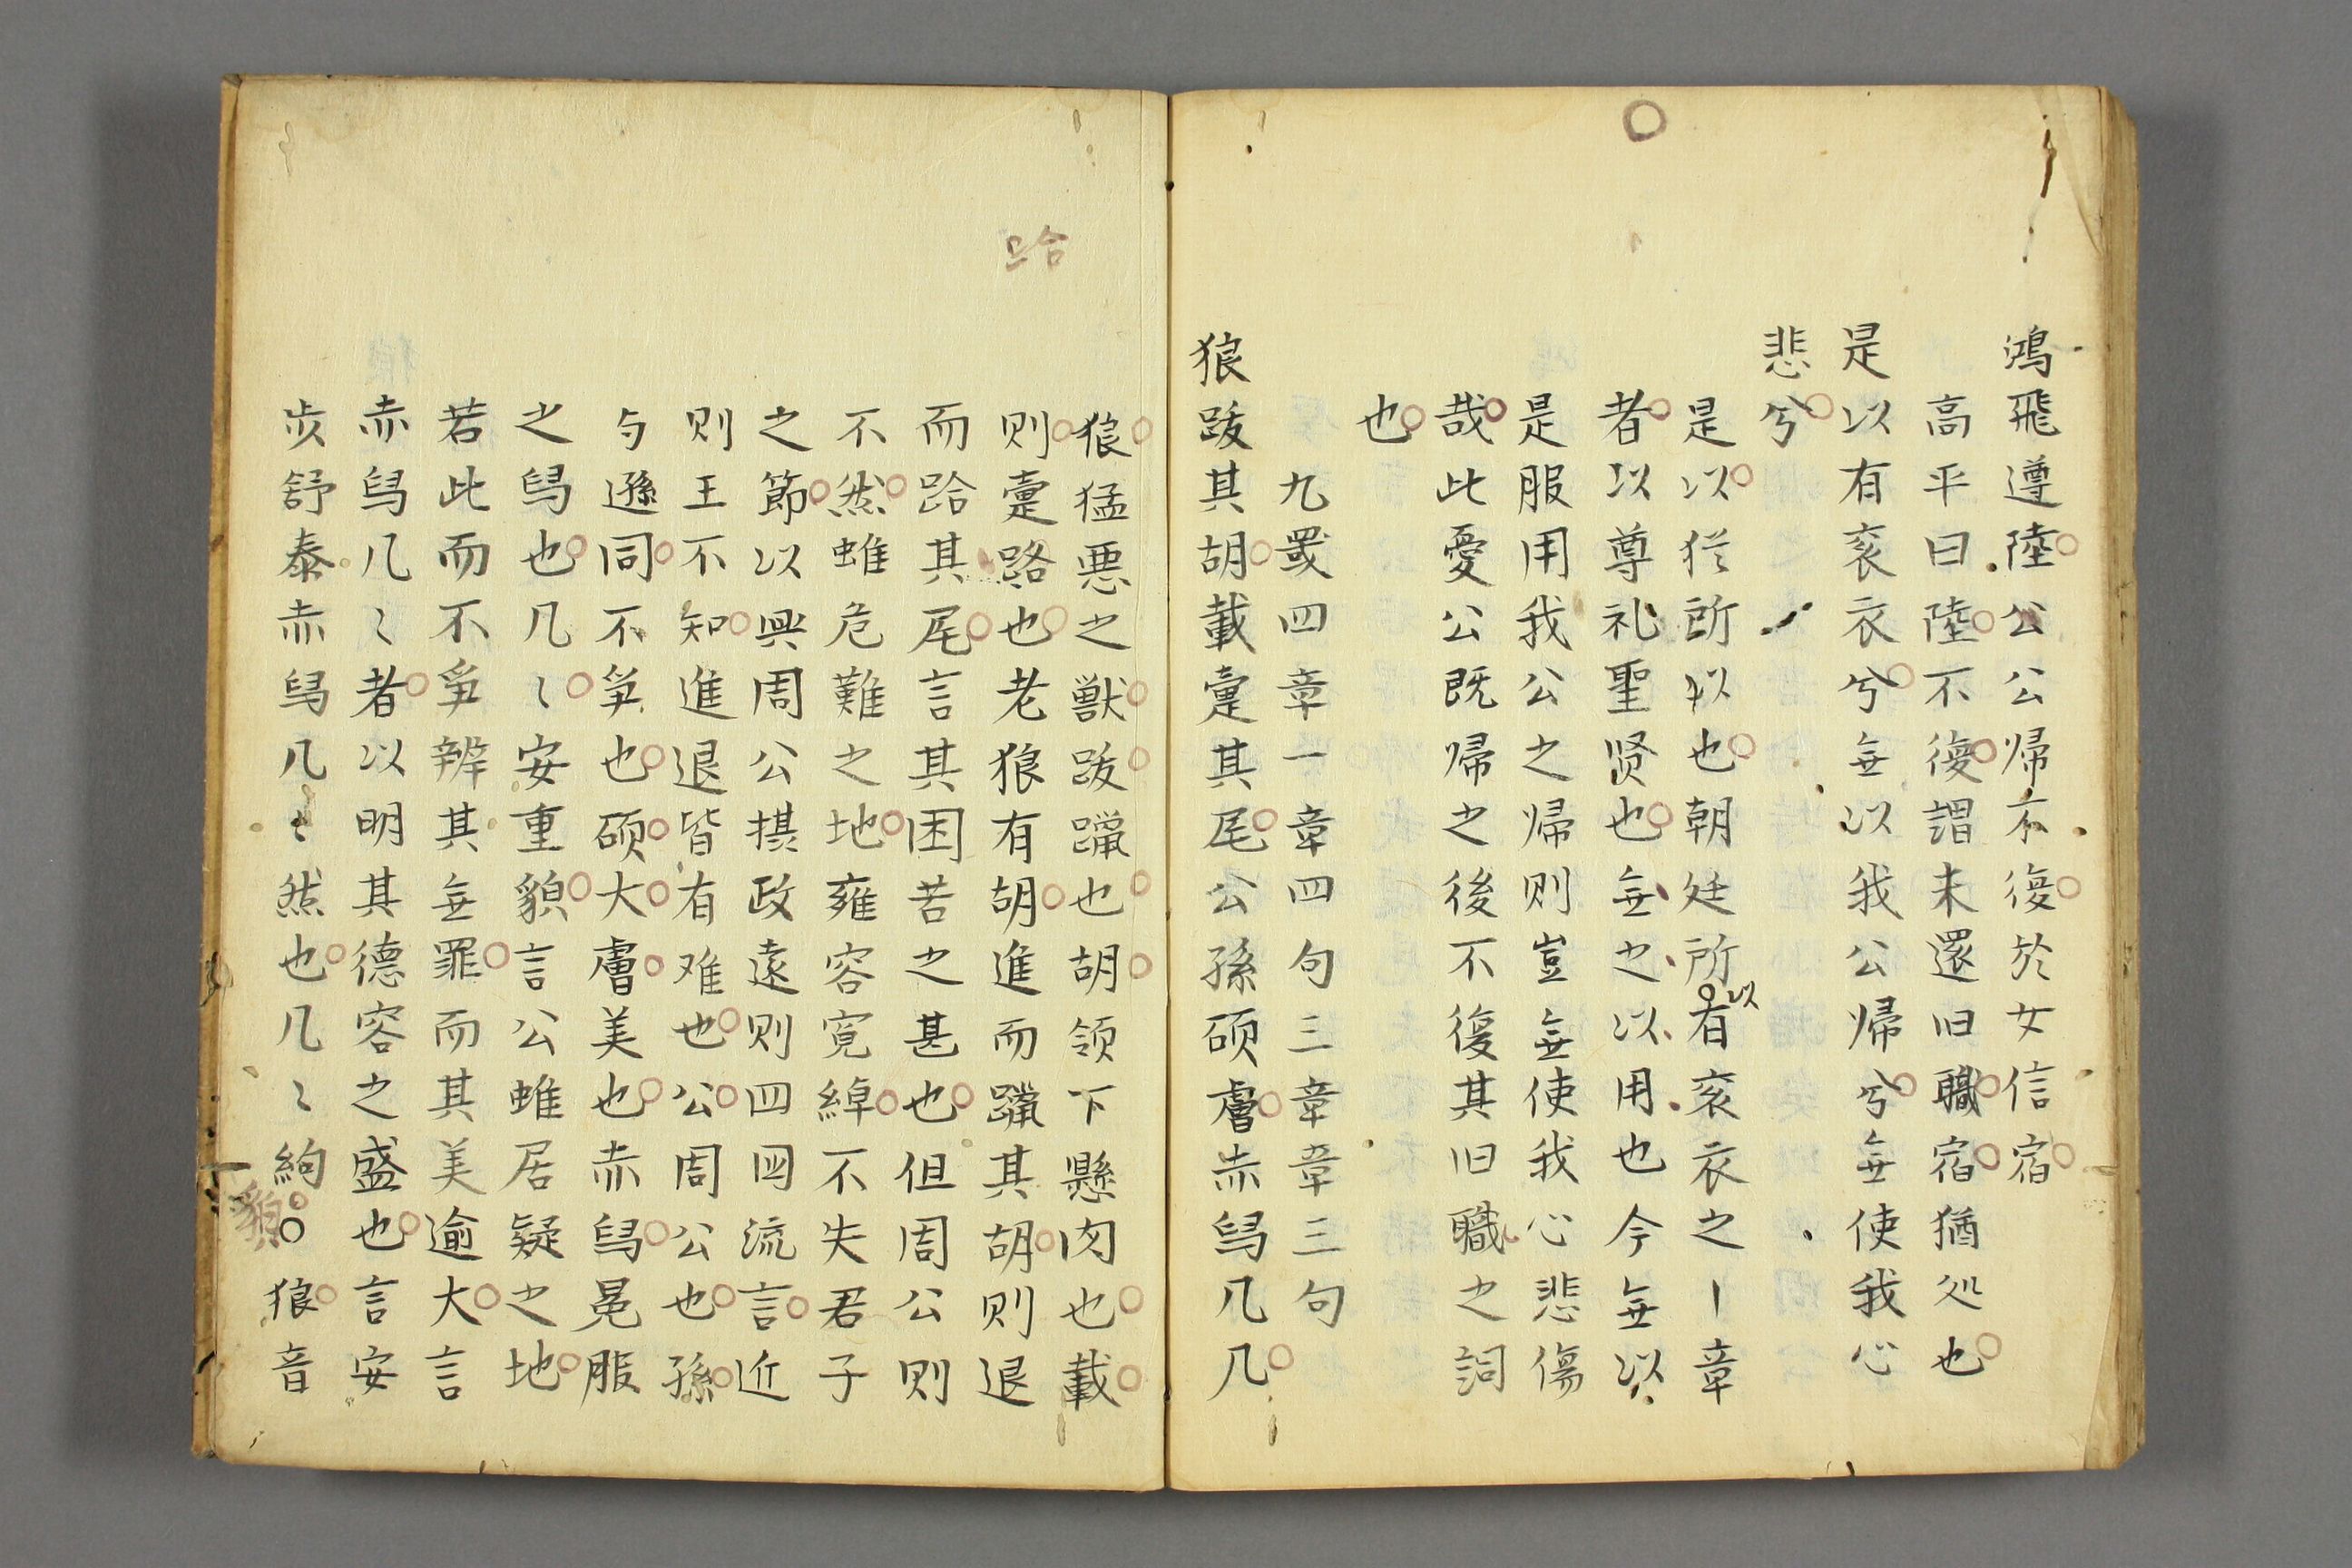 鴻飛遵陸公公帰不復於女信宿
高平曰陸不復謂未還旧職宿猶処也
是以有衮衣兮無以我公帰兮無使我心
悲兮
是以従所以也朝廷所有衮衣之丨章
以
者以尊礼聖贤也無之以用也今無以
是服用我公之帰则豈無使我心悲傷
哉此愛公既帰之後不復其旧職之詞
也
九罭四章一章四句三章章三句
狼跋其胡載疐其尾公孫硕膚赤舄几几
跲
狼猛悪之獣跋躐也胡领下懸肉也載
则疐路也老狼有胡進而躐其胡则退
而跲其尾言其困苦之甚也但周公则
不然虽危難之地雍容寛綽不失君子
之節以興周公摂政遠则四国流言近
则王不知進退皆有难也公周公也孫
与遜同不争也硕大膚美也赤舄冕服
之舄也几〻安重貌言公虽居疑之地
若此而不争辨其無罪而其美逾大言
赤舄几〻者以明其德容之盛也言安
步舒泰赤舄几〻然也几〻絇○狼音
貌